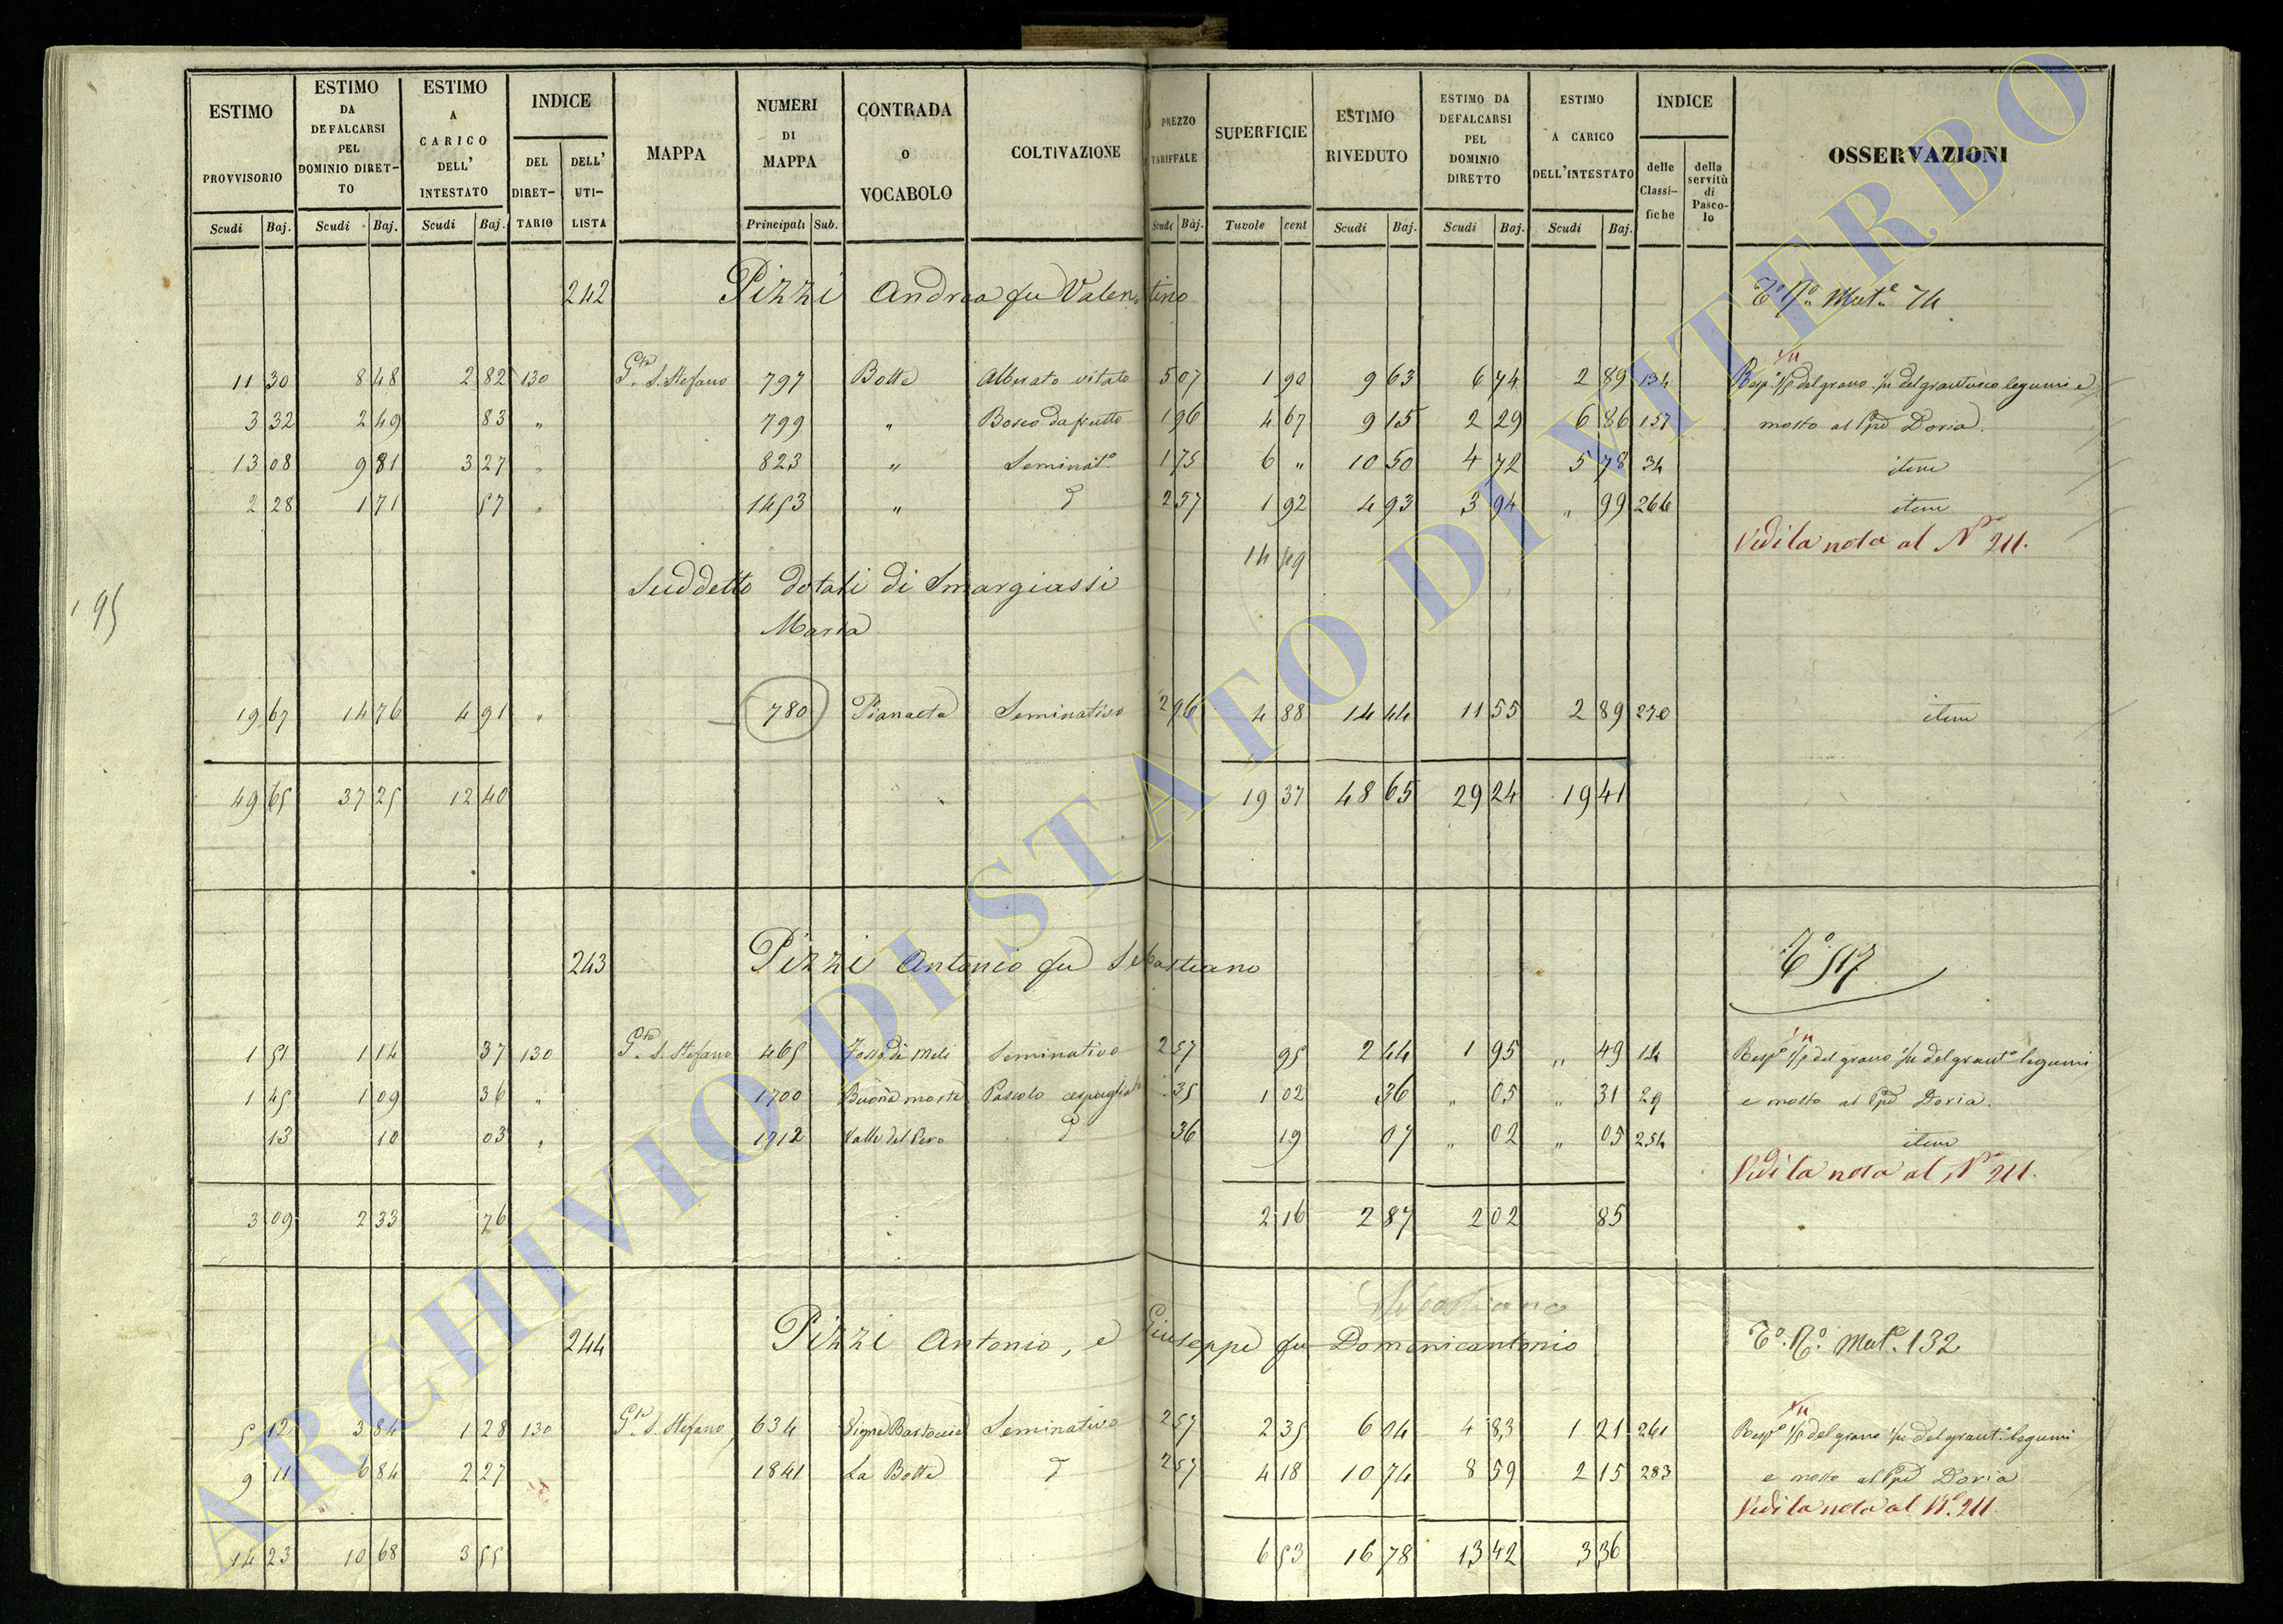 ESTIMO PROVVISORIO Scudi Baj.
ESTIMO DA DEFALCARSI PEL DOMINIO DIRETTO Scudi Baj.
ESTIMO A CARICO DELL' INTESTATO Scudi Baj.
INDICE DEL DIRETTARIO DELL' UTILISTA
MAPPA
NUMERI DI MAPPA Principali Sub.
CONTRADA o VOCABOLO
COLTIVAZIONE
PREZZO TARIFFALE Scudi Baj.
SUPERFICIE Tavole cent
ESTIMO RIVEDUTO Scudi Baj.
ESTIMO DA DEFALCARSI PEL DOMINIO DIRETTO Scudi Baj.
ESTIMO A CARICO DELL'INTESTATO Scudi Baj.
INDICE delle Classifiche della servitù di Pascolo
OSSERVAZIONI
242 Pizzi Andrea fu Valentino Mut.e 74
11 30 8 48 2 82 130 S. Stefano 797 Botte Alberato vitato 5 07 1 90 9 63 6 74 2 89 134 del grano legumi e
3 32 2 49 83 " 799 " Bosco da frutto 1 96 4 67 9 15 2 29 6 86 157 mosto al Doria.
13 08 9 81 3 27 " 823 " Seminat.o 1 75 6 " 10 50 4 72 5 78 34 item
2 28 1 71 57 " 1453 " 2 57 1 92 4 93 3 94 " 99 266 item
Vedi la nota al N.o 211.
14 49
Suddetto dotali di Smargiassi
Maria
195
19 67 14 76 4 91 " 780 Seminativo 2 96 4 88 14 44 11 55 2 89 270 item
49 65 37 25 12 40 19 37 48 65 29 24 19 41
243 Pizzi Antonio fu Sebastiano 517
1 51 1 14 37 130 S. Stefano 465 Fosso di Meli Seminativo 2 57 95 2 44 1 95 " 49 14 del grano legumi
1 45 1 09 36 " 1700 Buona morte Pascolo 35 1 02 36 " 05 " 31 29 e mosto al Doria.
13 10 03 " 1712 Valle del Pero 36 19 07 " 02 " 05 254 item
Vedi la nota al N.o 211.
3 09 2 33 76 2 16 2 87 2 02 85
Sebastiano
244 Pizzi Antonio, e Giuseppe fu Domenicantonio Mut.e 132
5 12 3 84 1 28 130 S. Stefano 634 Seminativo 2 57 2 35 6 04 4 83 1 21 261 del grano legumi
9 11 6 84 2 27 1841 La Botte 2 57 4 18 10 74 8 59 2 15 283 e mosto al Doria
Vedi la nota al N.o 211.
14 23 10 68 3 55 6 53 16 78 13 42 3 36
ARCHIVIO DI STATO DI VITERBO